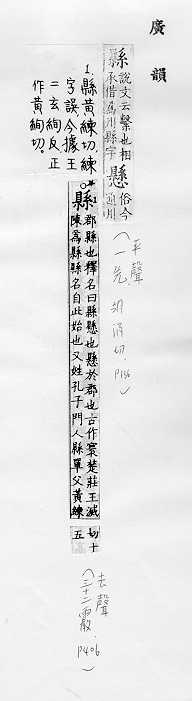 廣韻
縣 說文云繫也相
承借為州縣字 懸 俗今
通用
(平聲
一先, 胡涓切, P136)
1. 縣黃練切,練
字誤,今據王
二玄絢反正
作黃絢切。
縣 1 郡縣也釋名曰縣懸也懸於郡也古作寰楚莊王滅
陳為縣縣名自此始也又姓孔子門人縣單父黃練
切十
五
(去聲
三十二霰, P406)